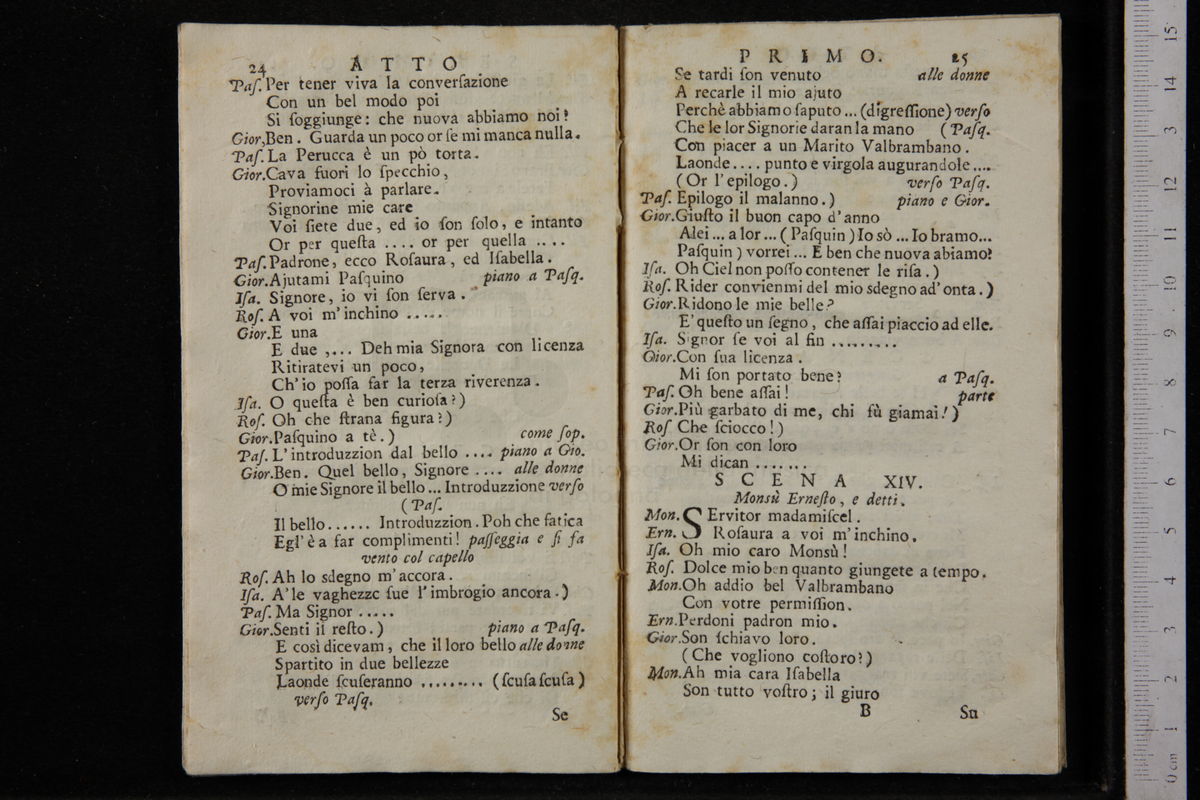 24 ATTO
Paſ. Per tener viva la converſazione
Con un bel modo poi
Si ſoggiunge: che nuova abbiamo noi?
Gior, Ben. Guarda un poco or ſe mi manca nulla.
Paſ. La Perucca è un pò torta.
Gior. Cava fuori lo ſpecchio,
Proviamoci à parlare.
Signorine mie care
Voi ſiete due, ed io ſon ſolo, e intanto
Or per queſta .... or per quella ....
Paſ. Padrone, ecco Roſaura, ed Iſabella.
Gior. Ajutami Paſquino piano a Paſq.
Iſa. Signore, io vi ſon ſerva.
Roſ. A voi m'inchino .....
Gior. E una
E due ,... Deh mia Signora con licenza
Ritiratevi un poco,
Ch'io poſſa far la terza riverenza.
Iſa. O queſta è ben curioſa?)
Roſ. Oh che ſtrana figura?)
Gior. Paſquino a tè.) come ſop.
Paſ. L'introduzzion dal bello .... piano a Gio.
Gior. Ben. Quel bello, Signore .... alle donne
O mie Signore il bello ... Introduzzione verſo
(Paſ.
Il bello ...... Introduzzion. Poh che fatica
Egl'è a far complimenti! paſſeggia e ſi fa
vento col capello
Roſ. Ah lo sdegno m'accora.
Iſa. A'le vaghezze ſue l'imbrogio ancora.)
Paſ. Ma Signor .....
Gior. Senti il reſto.) piano a Paſq.
E così dicevam, che il loro bello alle donne
Spartito in due bellezze
Laonde ſcuſeranno ......... (ſcuſa ſcuſa)
verſo Paſq.
Se
PRIMO. 25
Se tardi ſon venuto alle donne
A recarle il mio ajuto
Perchè abbiamo ſaputo ... (digreſſione) verſo
Che le lor Signorie daran la mano (Paſq.
Con piacer a un Marito Valbrambano.
Laonde .... punto e virgola augurandole ....
(Or l'epilogo.) verſo Paſq.
Paſ. Epilogo il malanno.) piano e Gior.
Gior. Giuſto il buon capo d'anno
Alei ... a lor ... (Paſquin) Io sò ... Io bramo...
Paſquin) vorrei ... E ben che nuova abiamo?
Iſa. Oh Ciel non poſſo contener le riſa.)
Roſ. Rider convienmi del mio sdegno ad'onta.)
Gior. Ridono le mie belle?
E'queſto un ſegno, che aſſai piaccio ad elle.
Iſa. Signor ſe voi al fin .........
Gior. Con ſua licenza.
Mi ſon portato bene? a Paſq.
Paſ. Oh bene aſſai! parte
Gior. Più garbato di me, chi fù giamai!)
Roſ Che ſciocco!)
Gior. Or ſon con loro
Mi dican .......
SCENA XIV.
Monsù Erneſto, e detti.
Mon. SErvitor madamiſcel.
Ern. Roſaura a voi m'inchino.
Iſa. Oh mio caro Monsù!
Roſ. Dolce mio ben quanto giungete a tempo.
Mon. Oh addio bel Valbrambano
Con votre permiſſion.
Ern. Perdoni padron mio.
Gior. Son ſchiavo loro.
(Che vogliono coſtoro?)
Mon. Ah mia cara Iſabella
Son tutto voſtro; il giuro
B Su
0 cm 1 2 3 4 5 6 7 8 9 10 11 12 13 14 15
1 2 3